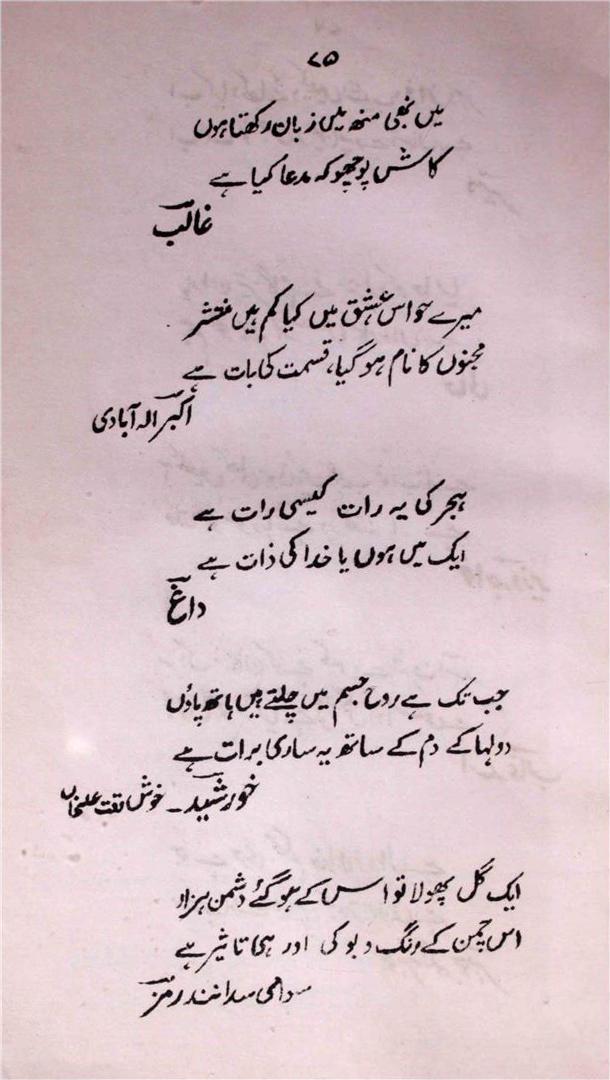 ۷۵
میں بھی منھ میں زبان رکھتا ہوں
کاش پوچھو کہ مدعا کیا ہے
غالب
میرے حواس عشق میں کیا کم ہیں منتشر
مجنوں کا نام ہو گیا، قسمت کی بات ہے
اکبر الہ آبادی
ہجر کی یہ رات کیسی رات ہے
ایک میں ہوں یا خدا کی ذات ہے
داغ
جب تک ہے روح جسم میں چلتے ہیں ہاتھ پاؤں
دولہا کے دم کے ساتھ یہ ساری برات ہے
خورشید ۔ خوش
ایک گل پھولا تو اس کے ہو گئے دشمن ہزار
اس چمن کے رنگ و بو کی اور ہی تاثیر ہے
رمز